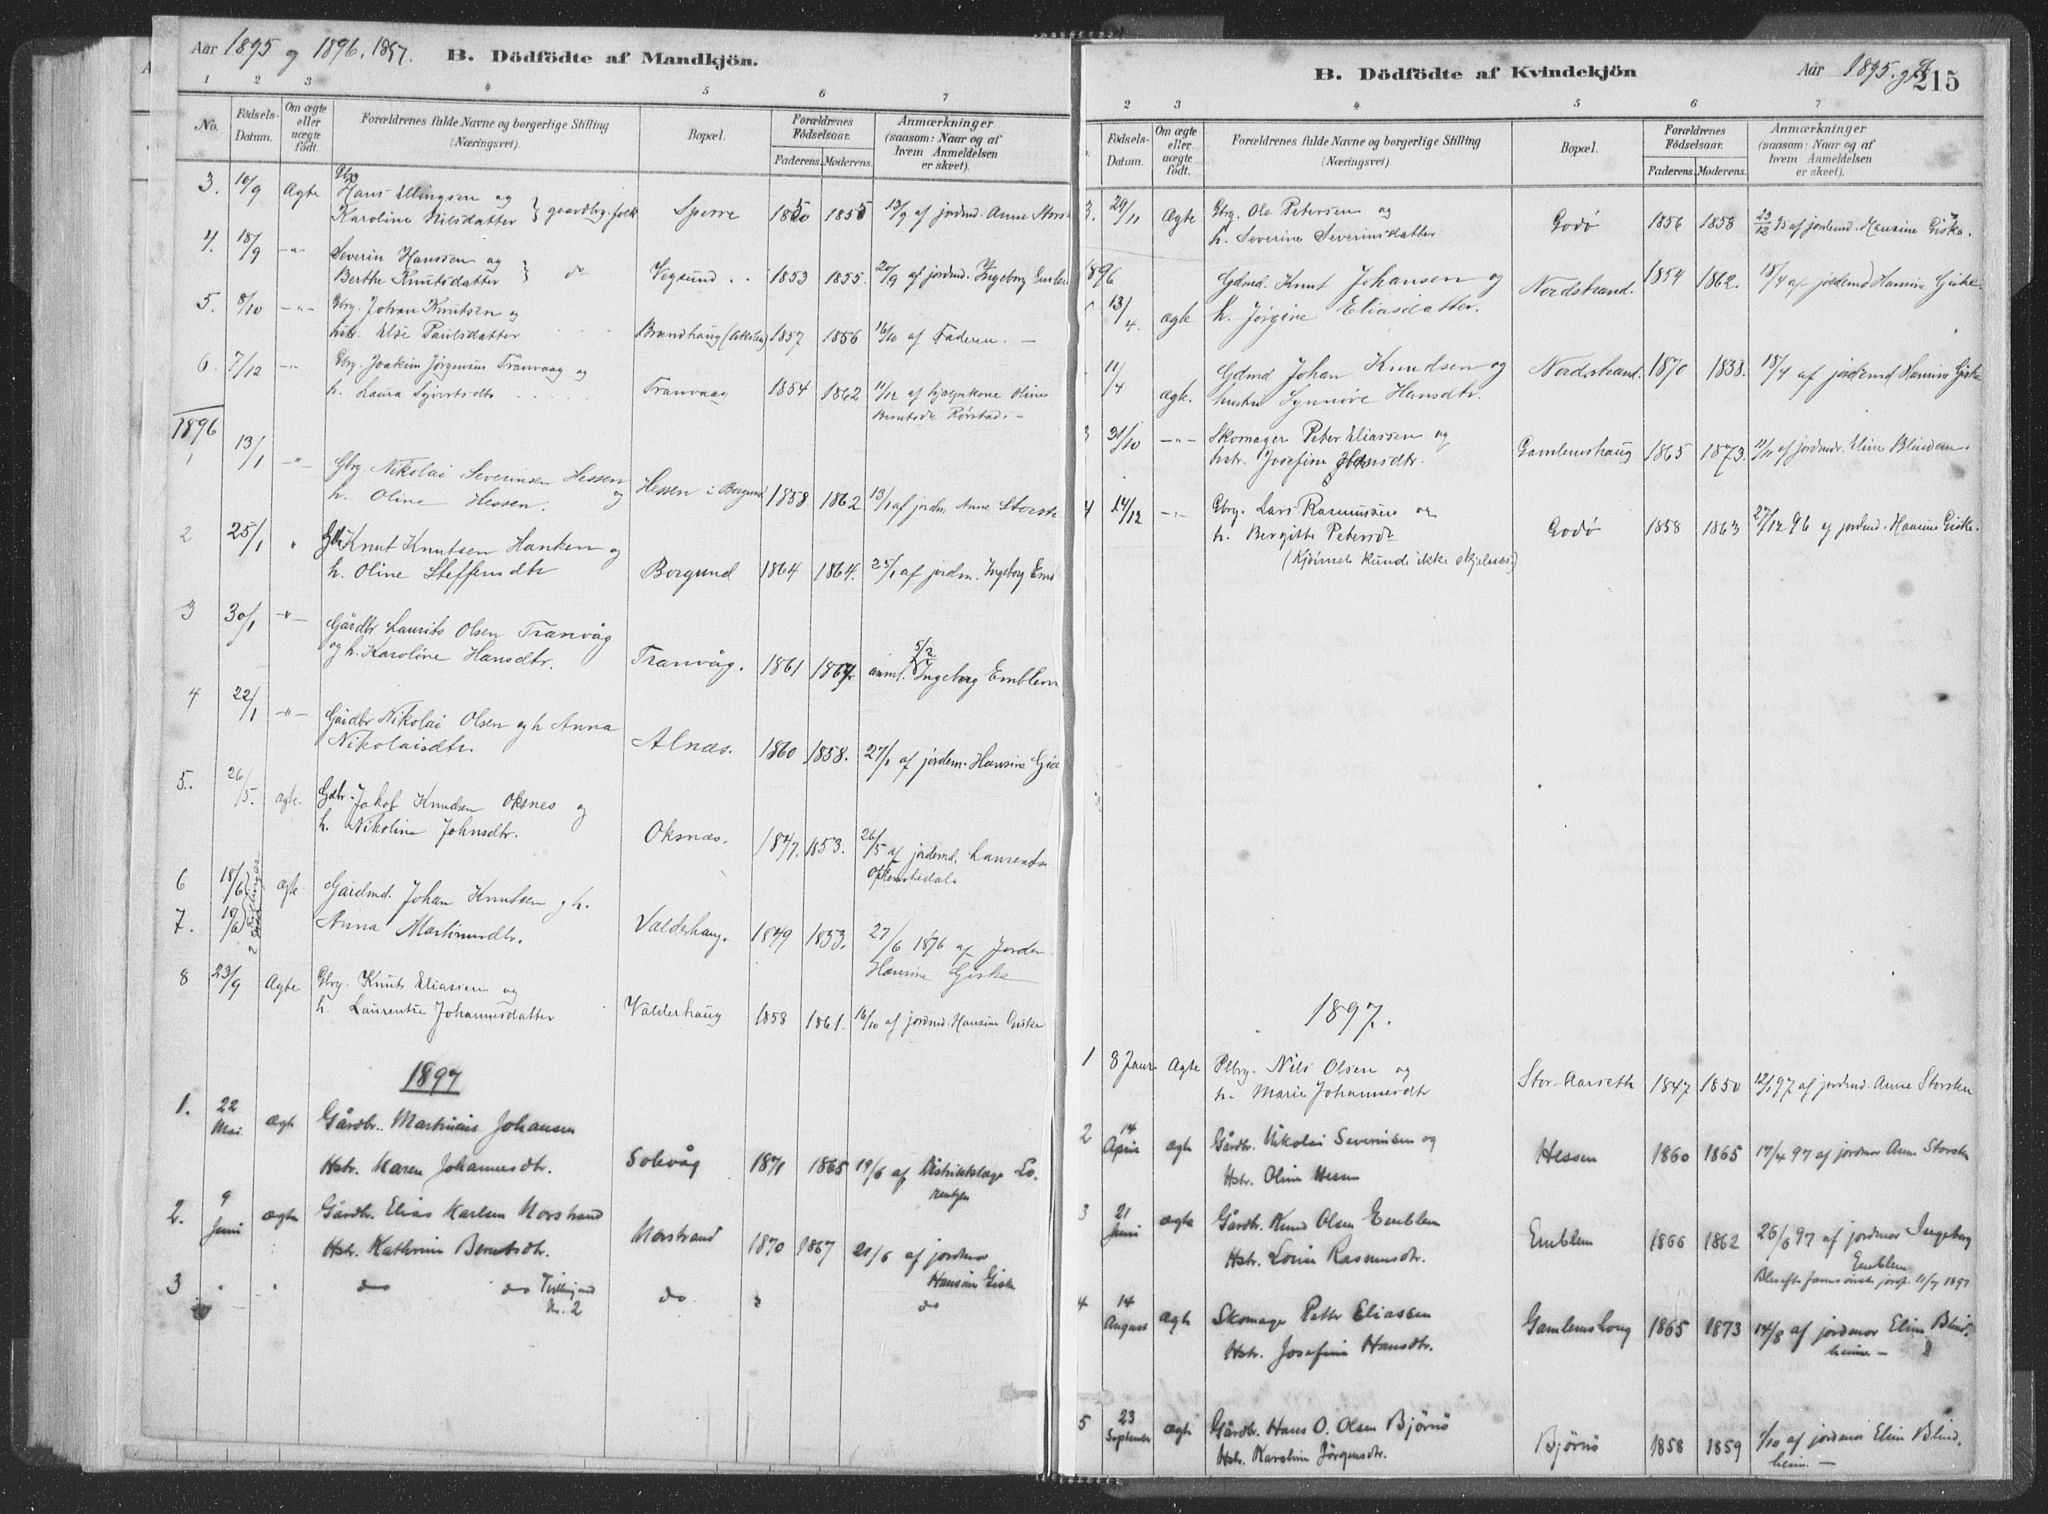 Aar 1895 og 1896. 1897.
B. Dödfödte af Mandkjön.
1 2 3 4 5 6 7
No. Födsels-Datum. Om ægte eller uægte födt. Forældrenes fulde Navne og borgerlige Stilling (Næringsvei). Bopæl. Forældrenes Födselsaar. Faderens. Moderens. Anmærkninger (saasom: Naar og af hvem Anmeldelsen er skeet).
3. 10/9 Ægte Gbr. Hans Ellingsen og
Karoline Nilsdatter } gaardbr.folk Sperre 1850 1855 13/9 af jordmd. Anne Storsk
4. 18/9 -"- Severin Hanssen og
Berthe Knutsdatter } do Vegsund 1853 1855. 20/9 af jordmd. Ingeborg Emble
5. 8/10 -"- Gbrg. Johan Knutsen og
hstr. Else Paulsdatter Brandhaug 1857 1856 16/10 af Faderen. -
6. 7/12 -"- Gbrg. Joakim Jørgensen Tranvaag og
h. Laura Sjurtsdtr Tranvaag 1854 1862 11/12 af hjælpekone Oline
Berntsdtr Rørstad. -
1896
1 13/1 -"- Gbrg. Nikolai Severinsen Hessen og
h. Oline Hessen. Hessen i Borgund 1858 1862 13/1 af jordm. Anne Storsk
2 25/1 " Gbr Knut Knutsen Hanken og
h. Oline Steffensdtr Borgund 1864 1864. 25/1 af jordm. Ingeborg Em
3 30/1 -"- Gårdbr Laurits Olsen Tranvåg
og h. Karoline Hansdtr. Tranvåg. 1861 anml. 5/2 Ingeborg Emblem
4 22/1 -"- Gårdbr Nikolai Olsen og h. Anna
Nikolaisdtr. Alnæs. 1860 1858. 27/1 af jordem. Hansine Gis
5. 26/5. ægte. Gdbr. Jakob Knudsen Oksnes og
h. Nikoline Johnsdtr. Oksnæs. 1847. 1853. 26/5 af jordemd. Laurentse
6 18/6 ægte. Gaardmd. Johan Knutsen og h.
7. 19/6 2 Tvillinger Anna Martinusdtr. Valderhaug. 1849 1853. 27/6 1896 af Jordem
Hansine Giske
8 23/9 Ægte Gbrg. Knut Eliassen og
h. Laurentse Johannesdatter Valderhaug 1858 1861. 16/10 af jordmd. Hansine Giske
1897
1. 22 Mai. ægte Gårdbr. Martinius Johansen
Hstr. Maren Johannesdtr. Solevåg 1871 1865 19/6 af Distriktslæge Lo-
rentzen
2. 9 Juni ægte Gårdbr. Elias Karlsen Norstrand
Hstr. Kathrine Berntsdtr. Norstrand 1870 1867 21/6 af jordmor
Hansine Giske
3 " " do do Tvilling med Nr. 2 do " do
B. Dödfödte af Kvindekjön
Aar 1895. og 9
215
2 3 4 5 6 7
Födsels-Datum. Om ægte eller uægte födt. Forældrenes fulde Navne og borgerlige Stilling (Næringsvei). Bopæl. Forældrenes Födselsaar. Faderens. Moderens. Anmærkninger (saasom: Naar og af hvem Anmeldelsen er skeet).
3. 29/11 Ægte Gbrg. Ole Petersen og
h. Severine Severinsdatter Godø 1856 1858 23/12 95 af jordmd. Hansine Giske.
1896
13/4. ægte Gdmd. Knut Johansen og
h. Jørgine Eliasdatter. Nordstrand. 1854 1862. 18/4 af jordemd Hansine Giske
11/4 ægte. Gdmd Johan Knudsen og
hustru Synnøve Hansdtr. Nordstrand. 1870 1838. 18/4 af jordemd Hansine Giske
3 31/10 -"- Skomager Peter Eliassen og
hstr. Josefine Hansdtr. Gamlemshaug 1865 1873. 11/11 af jordmdr. Eline Blindem.
4 14/12 -"- Gbrg. Lars Rasmussen og
h. Bergitte Petersdtr Godø 1858 1863 27/12 96 af jordmd. Hansine Giske.
(Kjønnet kunde ikke skjelnes.)
1897.
1 8 Januar Ægte Plbrg. Nils Olsen og
h. Marie Johannesdtr Stor-Aarseth 1847 1850 12/1 97 af jordmd. Anne Storsken
2 14 April ægte Gårdbr. Nikolai Severinsen og
Hstr. Oline Hessen Hessen 1860 1865 17/4 97 af jordmor Anne Storsken
3 21 Juni ægte Gårdbr. Knud Olsen Emblem
Hstr. Lovise Rasmusdtr. Emblem 1866 1862 26/6 97 af jordmor Ingeborg
Emblem
4 14 August ægte Skomager Petter Eliassen
Hstr. Josefine Hansdtr. Gamlemshoug 1865 1873 14/8 af jordmor Eline Blind-
heim. -
5 23 September ægte Gårdbr. Hans O. Olsen Bjørnø
Hstr. Karoline Jørgensdtr. Bjørnø 1858 1859 1/10 af jordmor Eline Blind-
heim. -